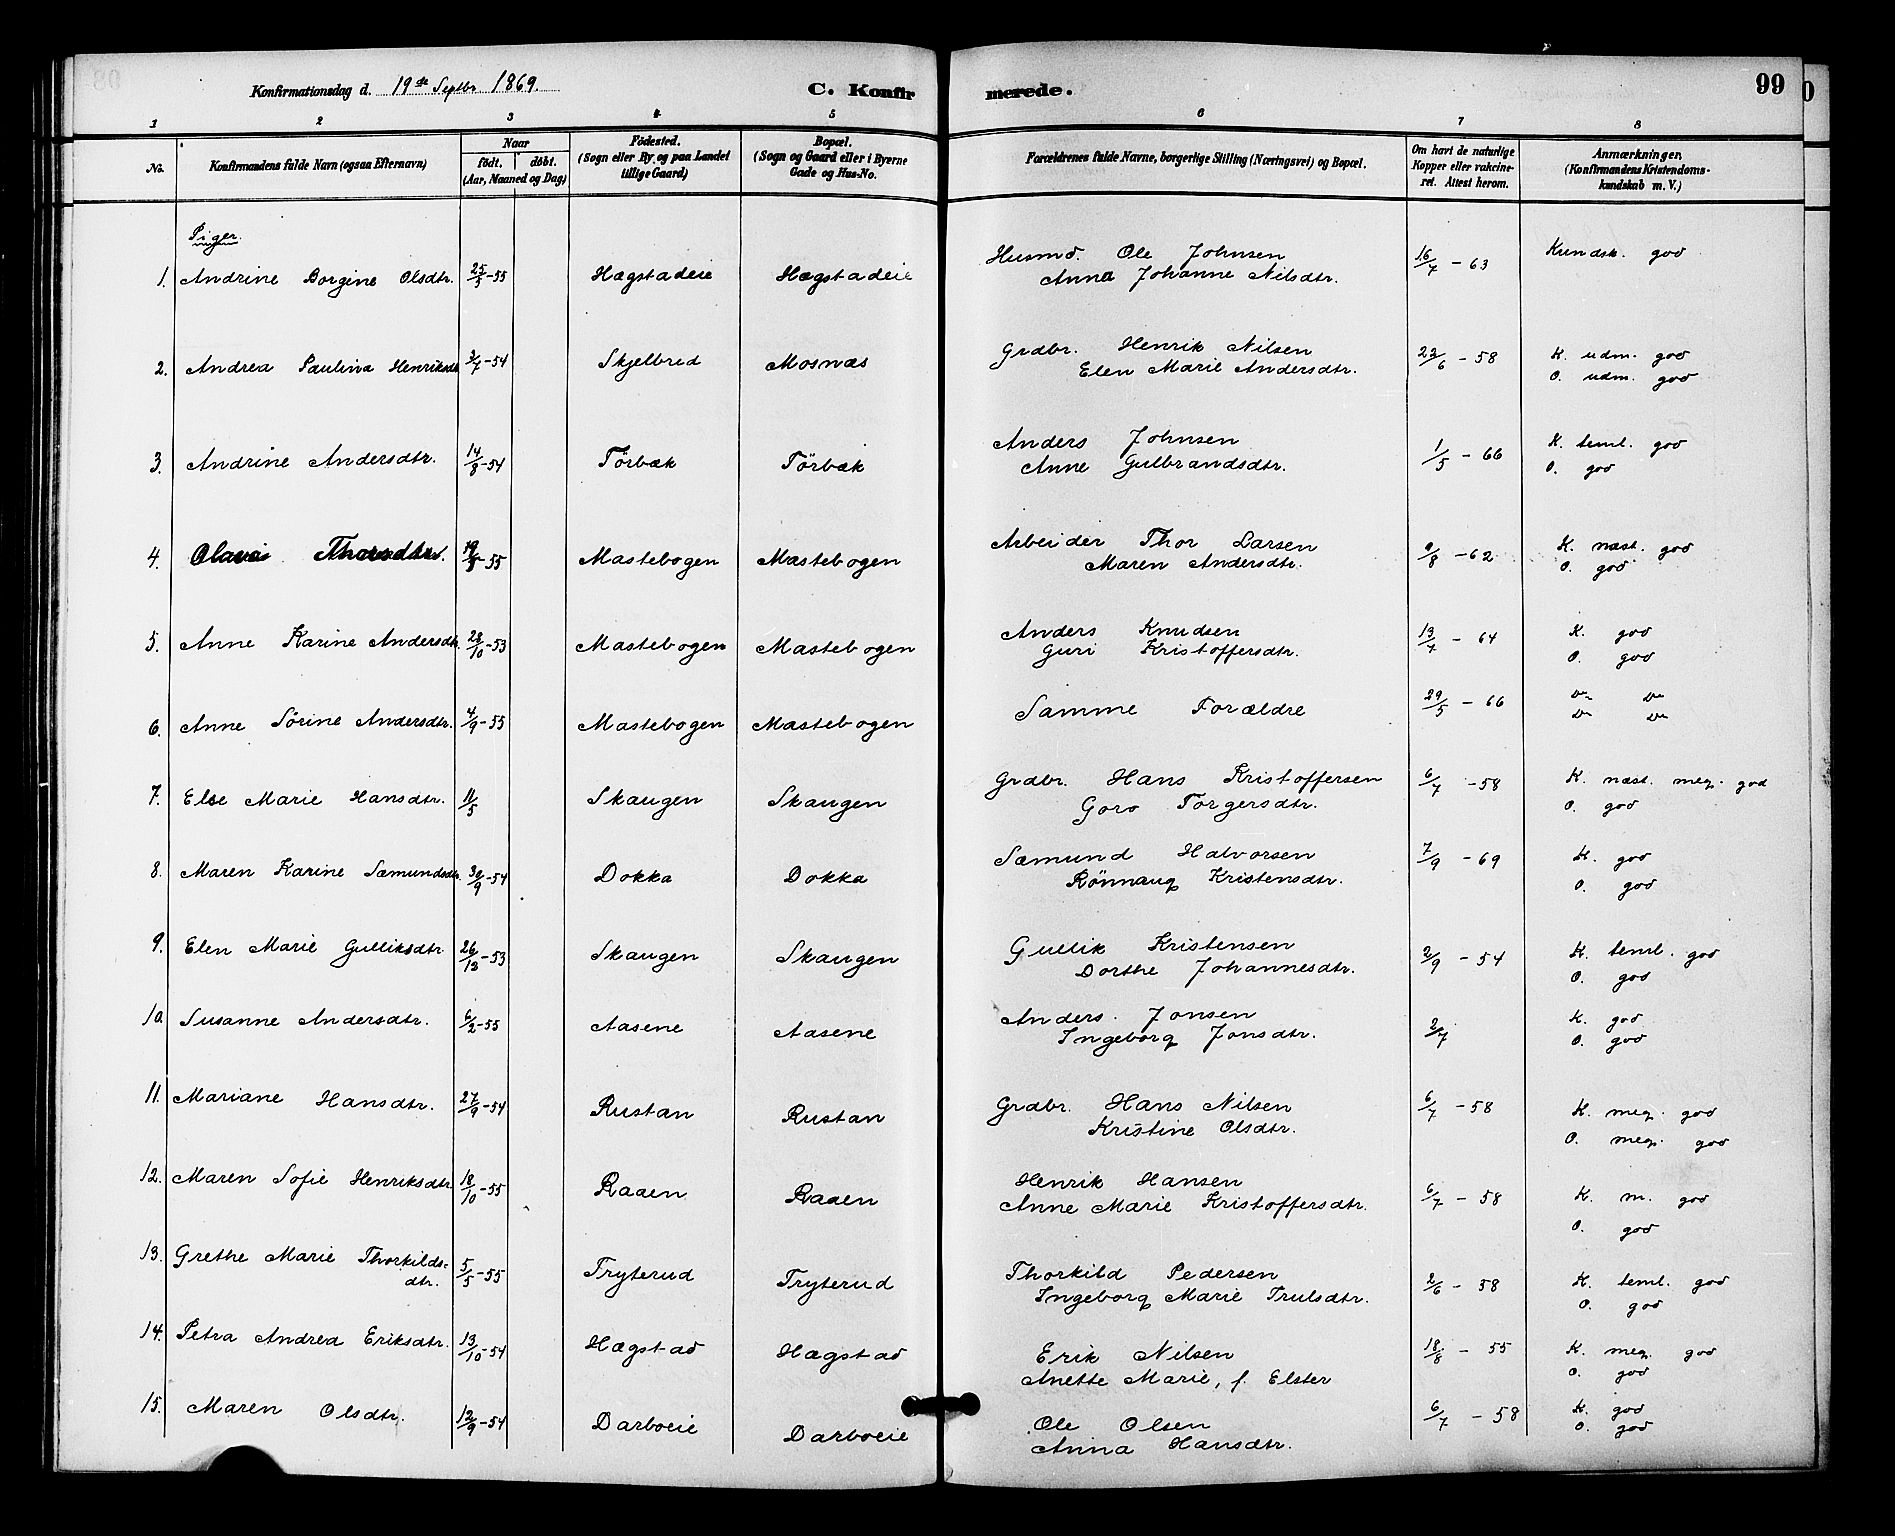 Konfirmationsdag d. 19de Septbr. 1869.
C. Konfirmerede.
99
1 2 3 4 5 6 7 8
No.
Konfirmandens fulde Navn (ogsaa Efternavn)
Naar
født. døbt.
(Aar, Maaned og Dag)
Fødested.
(Sogn eller By og paa Landet
tillige Gaard)
Bopæl.
(Sogn og Gaard eller i Byerne
Gade og Hus-No.
Forældrenes fulde Navne, borgerlige Stilling (Næringsvei) og Bopæl.
Om havt de naturlige
Kopper eller vakcine-
ret. Attest herom.
Anmærkninger.
(Konfirmandens Kristendoms-
kundskab m. V.)
Piger.
1. Andrine Borgine Olsdtr. 25/3-55 Hægstadeie Hægstadeie Husmd. Ole Johnsen 16/7 - 63 Kundsk. god
Anna Johanne Nilsdtr.
2. Andrea Paulina Henriksdt 3/7-54 Skjelbred Mosnæs Grdbr. Henrik Nilsen 22/6 - 58 K. udm. god
Elen Marie Andersdtr. O. udm. god
3. Andrine Andersdtr. 14/8-54 Törbæk Törbæk Anders Johnsen 1/5 - 66 K. teml. god
Anne Gulbrandsdtr. O. god
4. Thorsdtr. 55 Mastebogen Mastebogen Arbeider Thor Larsen 9/8 - 62 K. næst. god
Maren Andersdtr. O. god
5. Anne Karine Andersdtr. 28/10-53 Mastebogen Mastebogen Anders Knudsen 13/7 - 64 K. god
Guri Kristoffersdtr. O. god
6. Anne Sörine Andersdtr. 4/9-55 Mastebogen Mastebogen Samme Forældre 29/5 - 66 Do Do
Do Do
7. Else Marie Hansdtr. 11/5 Skaugen Skaugen Grdbr. Hans Kristoffersen 6/7 - 58 K. næst. meg. god
Goro Torgersdtr. O. god
8. Maren Karine Sæmundsdtr. 30/9-54 Dokka Dokka Sæmund Halvorsen 7/9 - 69 K. god
Rönnaug Kristensdtr. O. god
9. Elen Marie Gulliksdtr. 26/12-53 Skaugen Skaugen Gullik Kristensen 2/9 - 54 K. teml. god
Dorthe Johannesdtr. O. god
10. Susanne Andersdtr. 6/2-55 Aasene Aasene Anders Jonsen 2/7 K. god
Ingeborg Jonsdtr. O. god
11. Mariane Hansdtr. 27/9-54 Rustan Rustan Grdbr. Hans Nilsen 6/7 - 58 K. meg. god
Kristine Olsdtr. O. meg. god
12. Maren Sofie Henriksdtr. 18/10-55 Raaen Raaen Henrik Hansen 6/7 - 58 K. m. god
Anne Marie Kristoffersdtr. O. god
13. Grethe Marie Thorkilds- 5/5-55 Tryterud Tryterud Thorkild Pedersen 2/6 - 58 K. teml. god
dtr. Ingeborg Marie Trulsdtr. O. god
14. Petra Andrea Eriksdtr. 13/10-54 Hægstad Hægstad Erik Nilsen 18/8 - 55 K. meg. god
Anette Marie, f. Elster O. god
15. Maren Olsdtr. 12/9-54 Darboeie Darboeie Ole Olsen 6/7 - 58 K. god
Anna Hansdtr. O. god